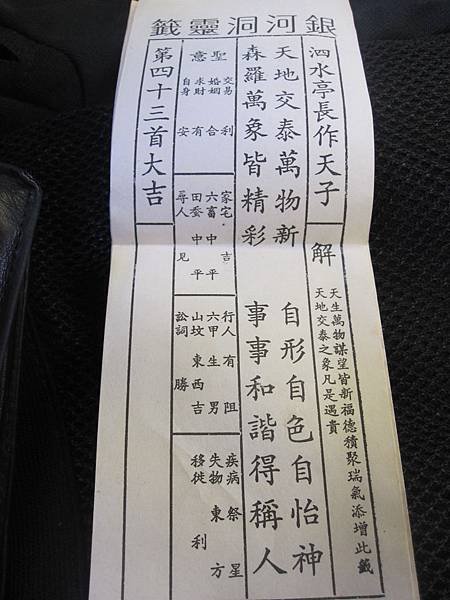 銀河洞靈籤
泗水亭長作天子
解
天生萬物謀望皆新福德積聚瑞氣添增此籤
天地交泰之象凡是遇貴
天地交泰萬物新 自形自色自怡神
森羅萬象皆精彩 事事和諧得稱人
聖意
交易 利
婚姻 合
求財 有
自身 安
家宅 吉
六畜 中平
田蚕 中平
尋人 見
行人 有阻
六甲 生男
山坟 東西吉
訟詞 勝
疾病 祭星
失物 東方
移徙 利
第四十三首大吉